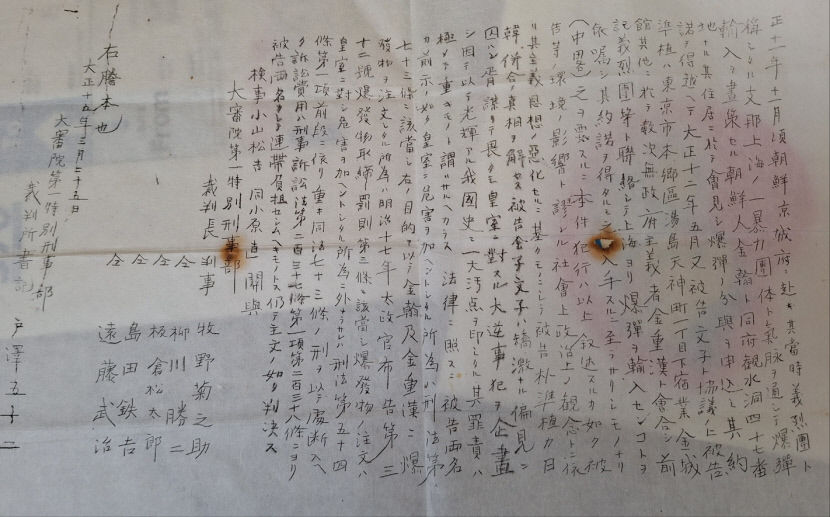 正十一年十一月頃朝鮮京城府ニ赴キ其當時義烈團ト
稱シタル支那上海ノ一暴力團体ト氣脉ヲ通シテ爆彈
輸入ヲ畫策セル朝鮮人金翰ト同府觀水洞四十七番
地ナル其住居ニ於テ會見シ爆彈ノ分與ヲ申込ミ其約
諾ヲ得越ヘテ大正十二年五月又被告文子ト協議ノ上被告
準植ハ東京市本郷區湯島天神町一丁目下宿業金城
館其他ニ於テ數次無政府主義者金重漢ト會合シ前
記義烈團等ト聯絡シテ上海ヨリ爆彈ヲ輸入センコトヲ
依囑シ其約諾ヲ得タルモ之カ入手スルニ至ラサリシモノナリ
(中畧)之ヲ要スルニ本件犯行ハ以上叙述スルカ如ク被
告等ノ環境ノ影響ト謬レル社會上政治上ノ觀念トニ依
リ其全義思想惡化セルニ基クモノニシテ被告朴準植カ日
韓併合ノ真相ヲ解セス被告金子文子カ矯激ナル偏見ニ
囚ハレ胥謀リテ畏クモ皇室ニ對スル大逆事犯ヲ企畫
シ因テ以テ光輝アル我國史ニ一大汚点ヲ印シタル其罪責ハ
極メテ重キモノト謂ハサルヘカラス 法律ニ照スニ被告両名
カ前示ノ如ク皇室ニ危害ヲ加ヘントシタル所為ハ刑法第
七十三條ニ該當シ右ノ目的ヲ以テ金翰及金重漢ニ爆
發物ヲ注文シタル所為ハ明治十七年太政官布告第三
十二號爆發物取締罰則第三條ニ該當シ爆發物ノ注文ハ
皇室ニ對シ危害ヲ加ヘントシタル所為ニ外ナラサレハ刑法第五十四
條第一項前段ニ依リ重キ同法七十三條ノ刑ヲ以テ處断スヘ
ク訴訟費用ハ刑事訴訟法第二百三十七條第一項第二百三十八條ニヨリ
被告両名ヲシテ連帶負担セシムヘキモノトス仍テ主文ノ如ク判決ス
検事小山松吉 同小原直關與
大審院第一特別刑事部
裁判長判事 牧野菊之助
仝 柳川勝二
仝 板倉松太郎
仝 島田鉄吉
仝 遠藤武治
右謄本也
大正十五年三月二十五日
大審院第一特別刑事部
裁判所書記 戸澤五十二